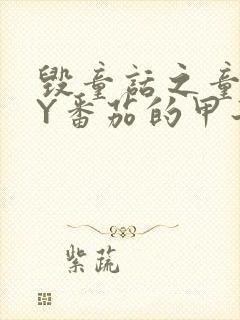 毁童话之童
Y番茄的甲
紫蔬